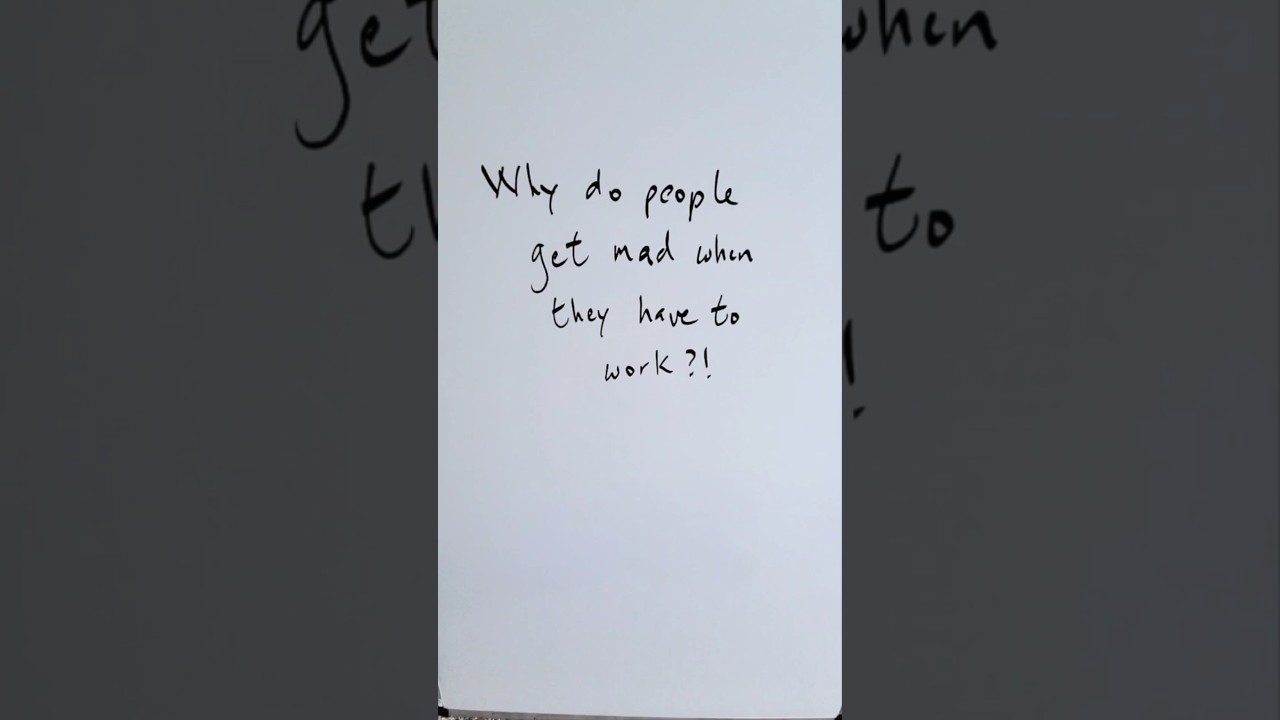 Why do people
get mad when
they have to
work?!